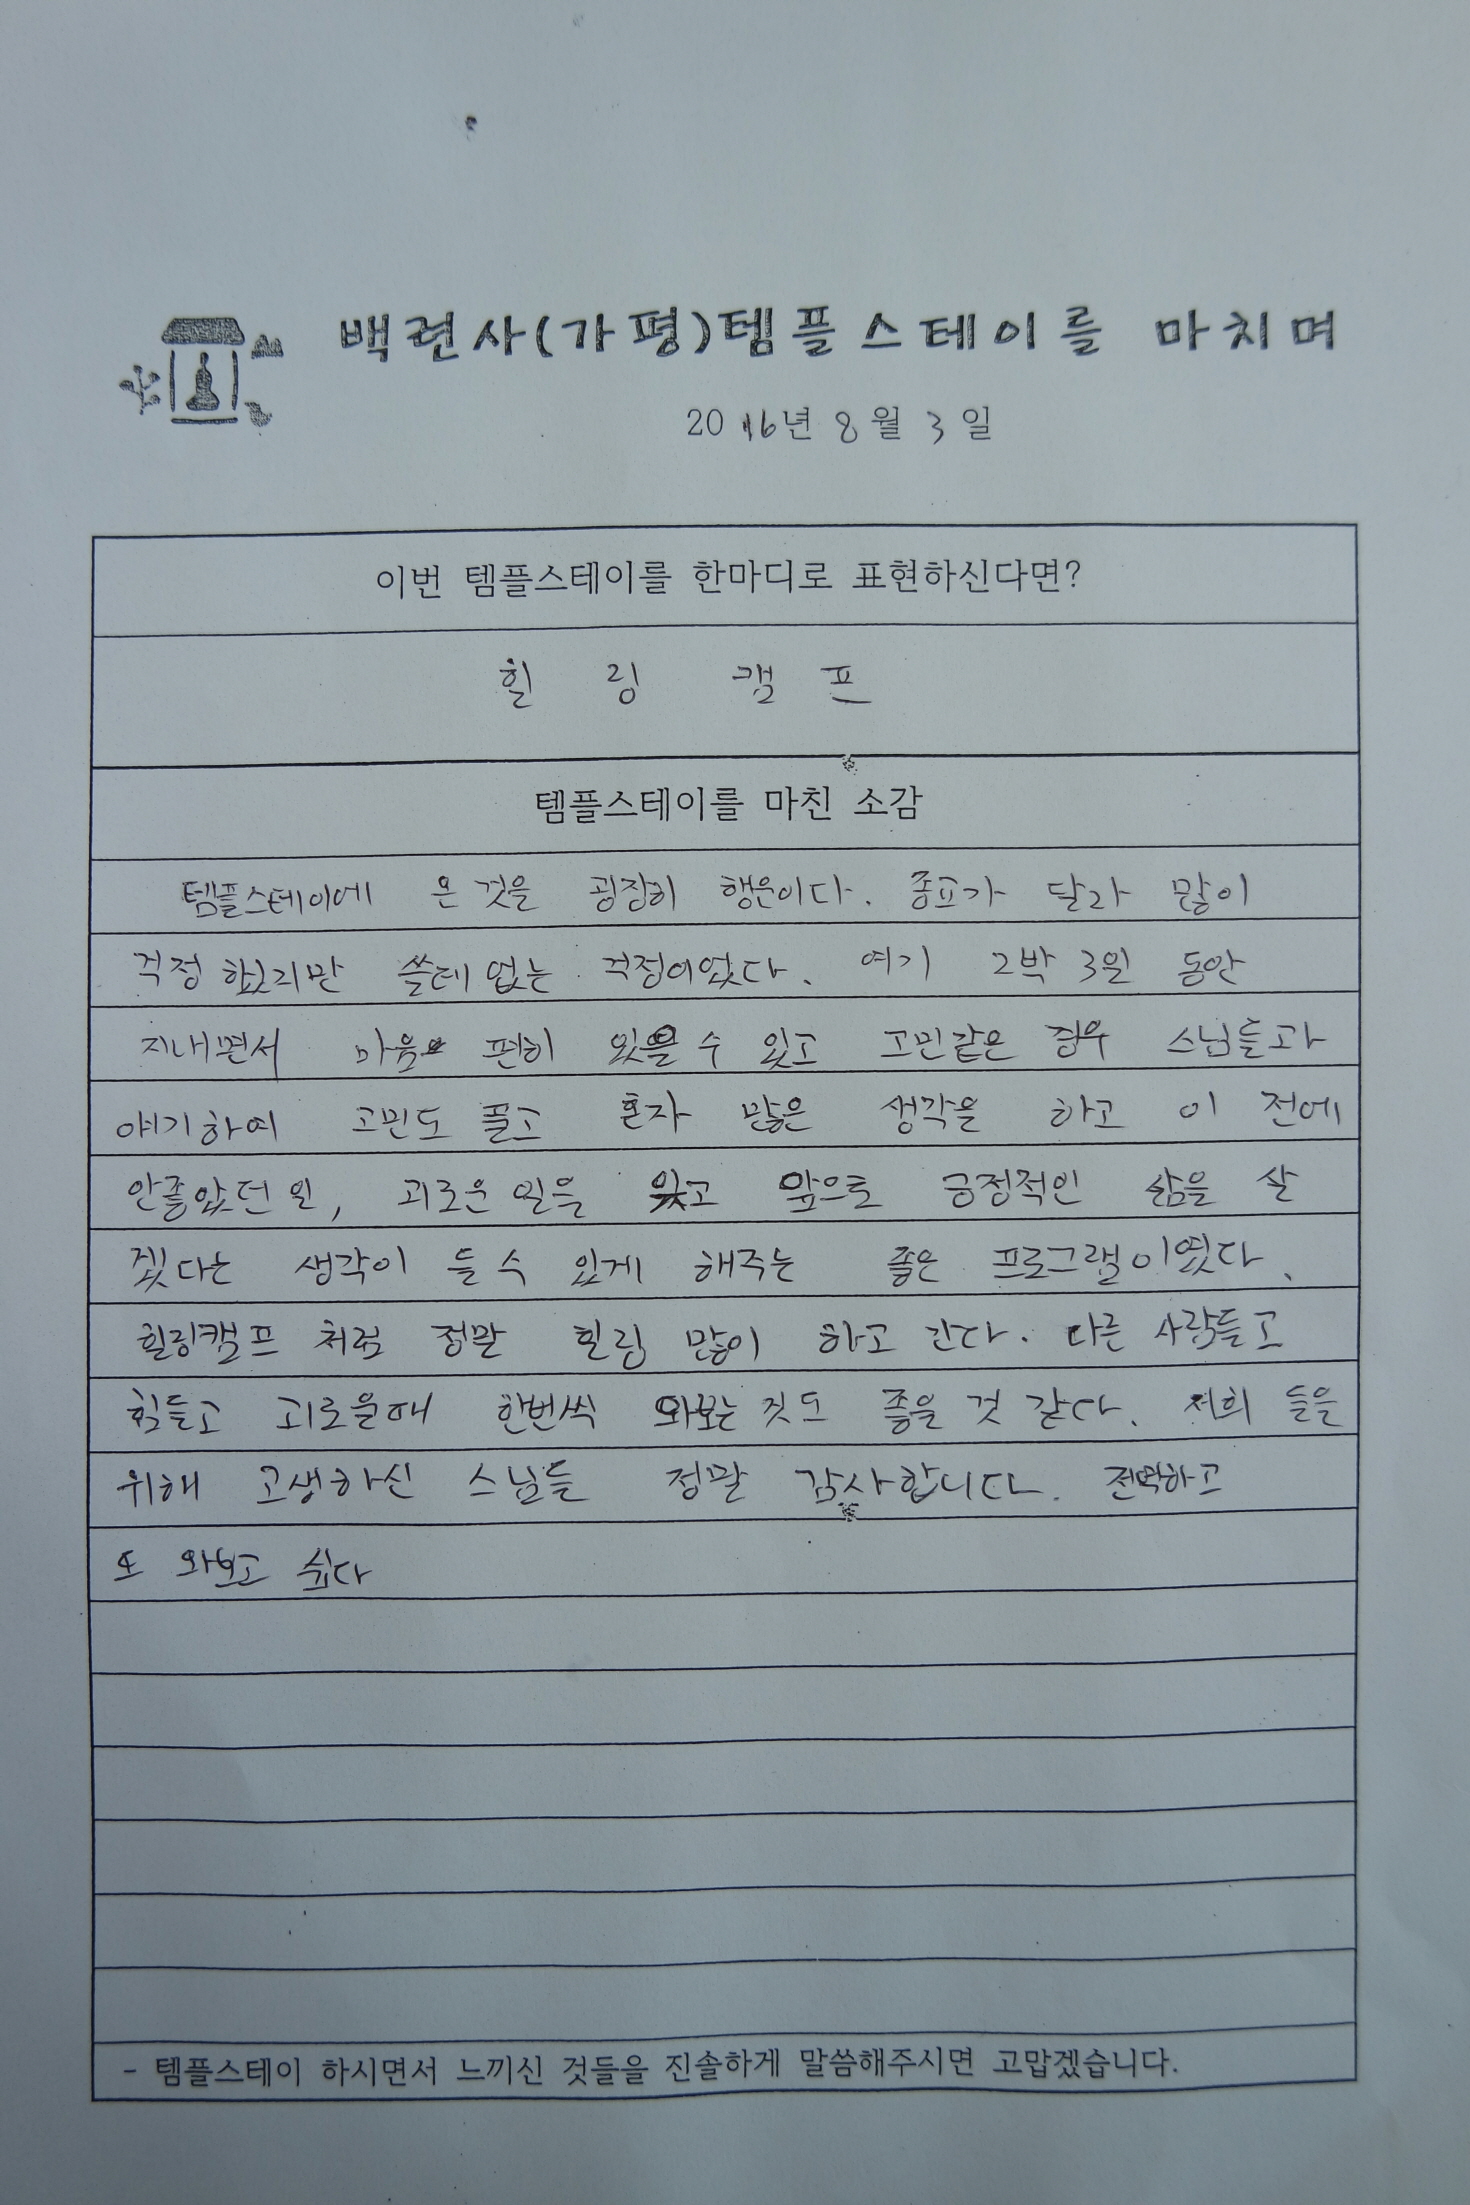 백련사(가평)템플스테이를 마치며
2016년 8월 3일
이번 템플스테이를 한마디로 표현하신다면?
힐링캠프
템플스테이를 마친 소감
템플스테이에 온 것을 굉장히 행운이다. 종교가 달라 많이
걱정 했지만 쓸데없는 걱정이었다. 여기 2박 3일 동안
지내면서 마음 편히 있을 수 있고 고민같은 경우 스님들과
얘기하여 고민도 풀고 혼자 많은 생각을 하고 이 전에
안좋았던 일, 괴로운 일을 잊고 앞으로 긍정적인 삶을 살
겠다는 생각이 들 수 있게 해주는 좋은 프로그램이였다.
힐링캠프 처럼 정말 힐링 많이 하고 간다. 다른 사람들고
힘들고 괴로울때 한번씩 와보는 것도 좋을 것 같다. 저희 들을
위해 고생하신 스님들 정말 감사합니다. 전역하고
또 와보고 싶다
- 템플스테이 하시면서 느끼신 것들을 진솔하게 말씀해주시면 고맙겠습니다.